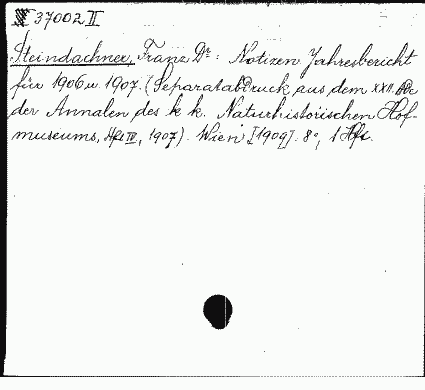 37002 II
Steindachner, Franz Dr: Notizen Jahresbericht
für 1906 u 1907. (Separatabdruck aus dem XXII. Bde
der Annalen des k k. Naturhistorischen Hof-
museums, Hft IV, 1907). Wien [1909]. 8°, 1 Hft.